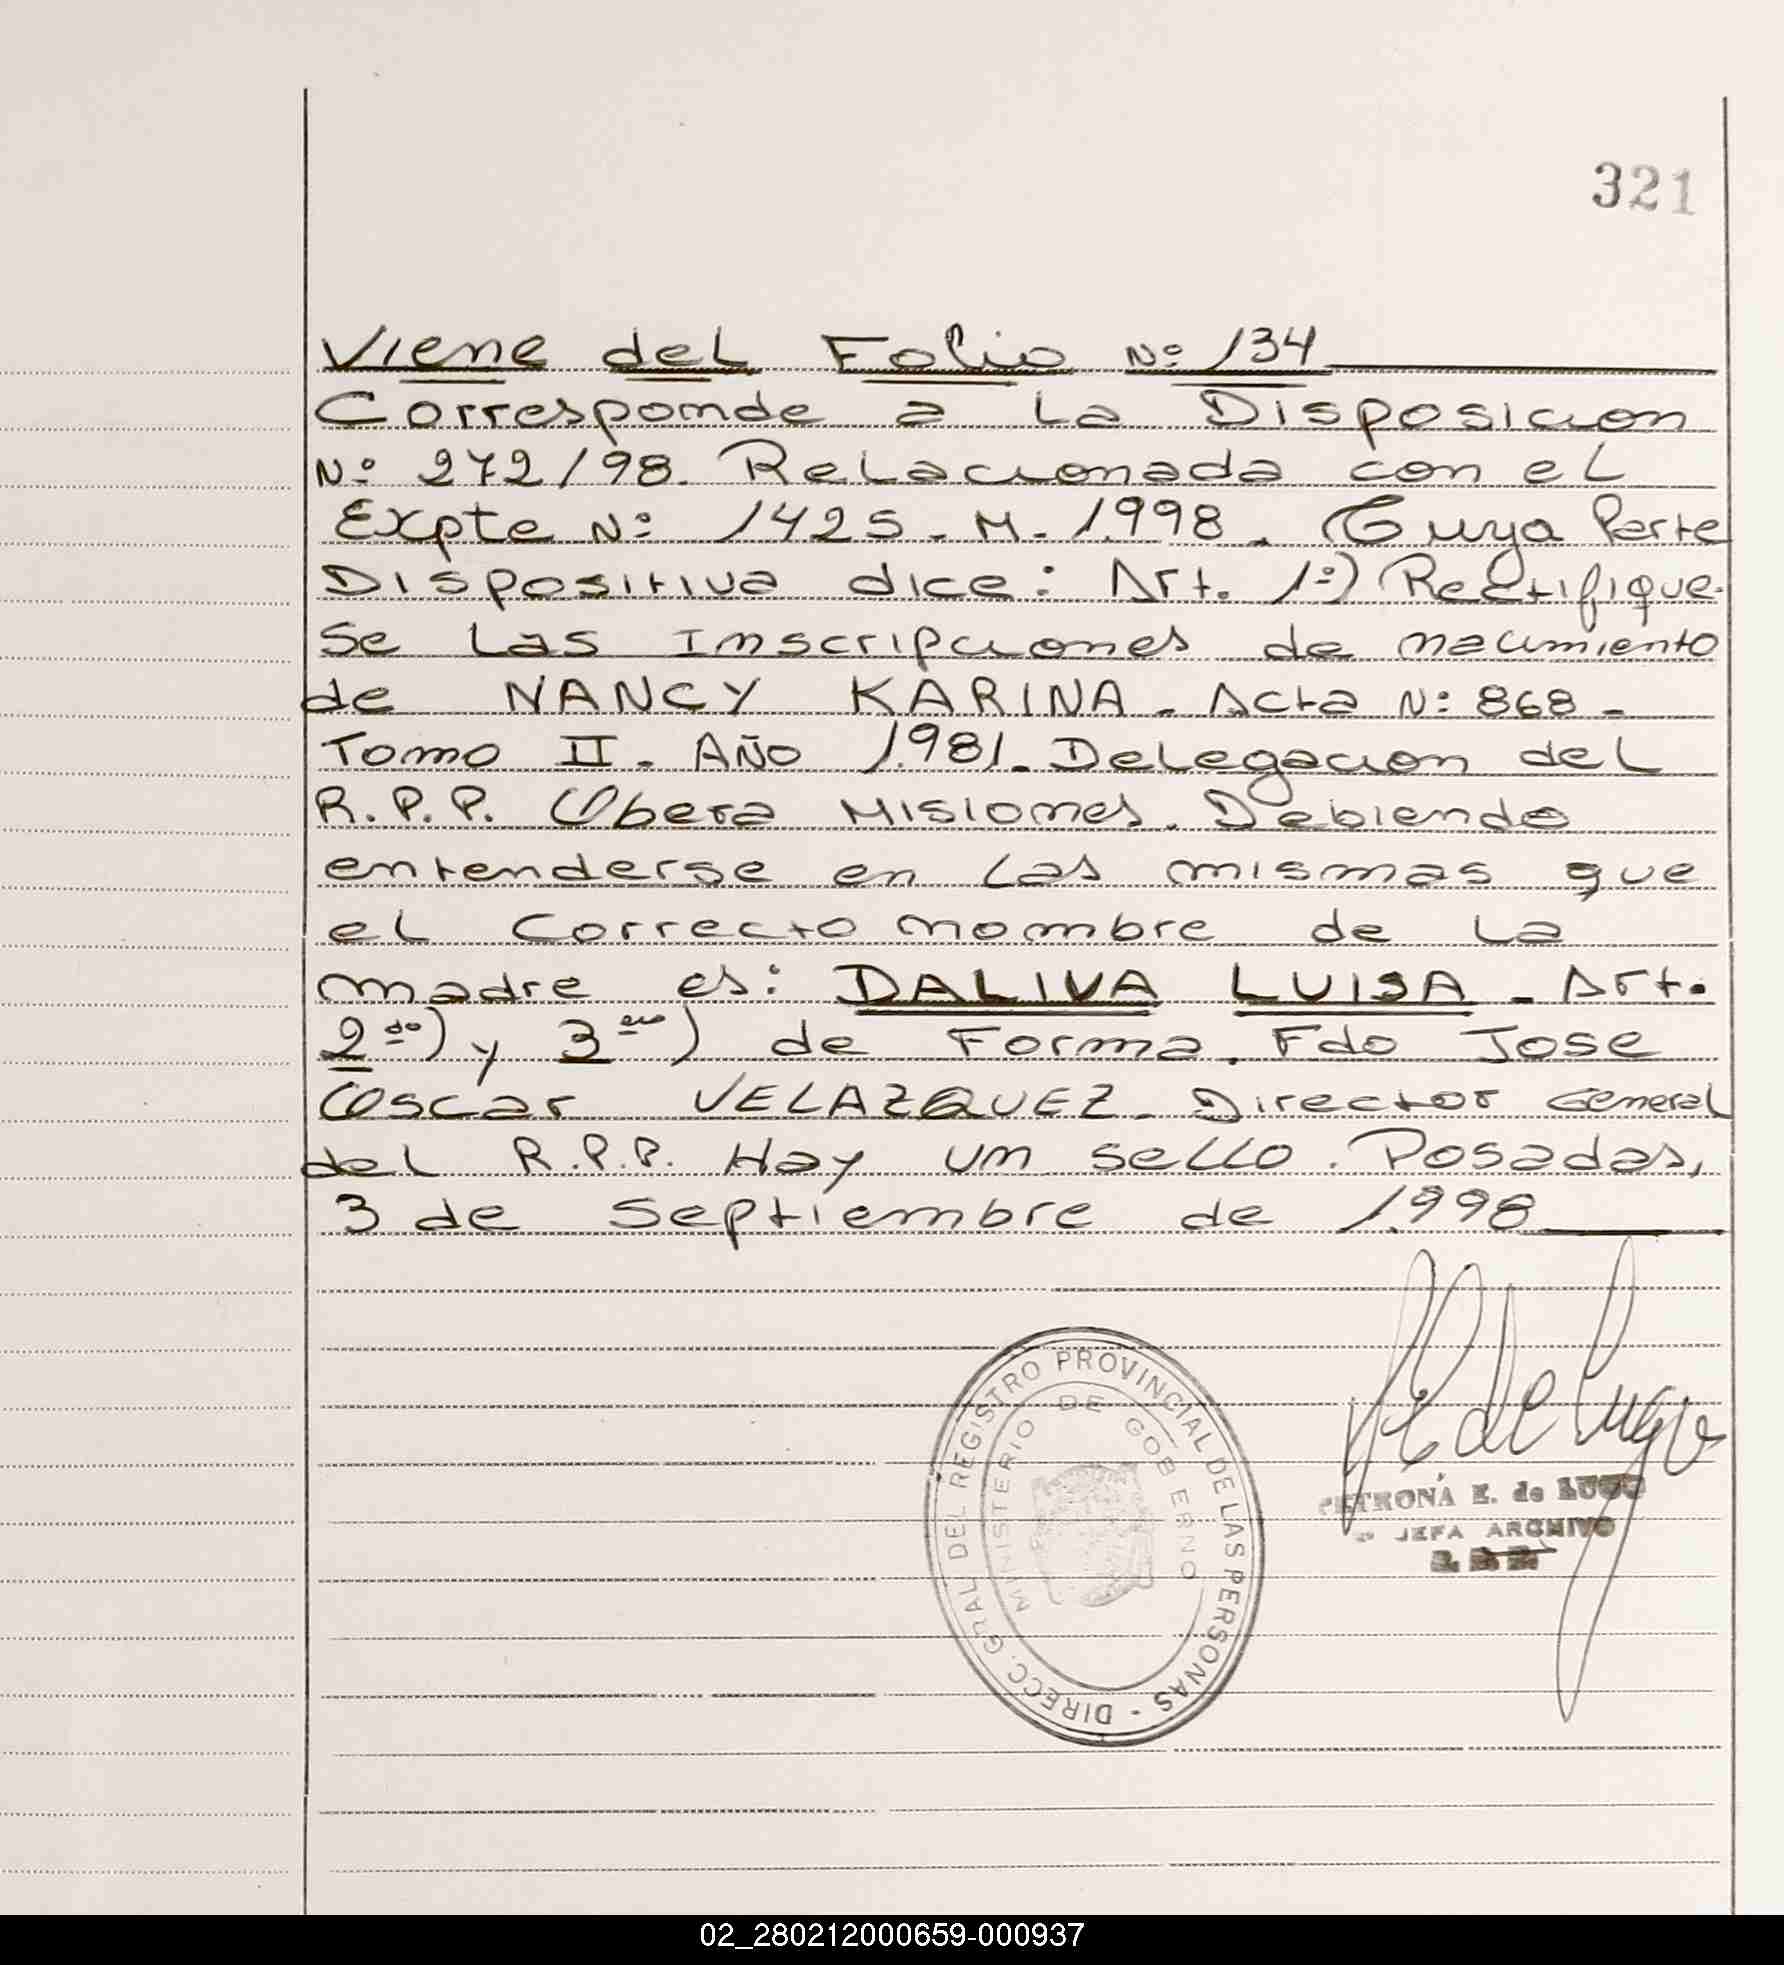 321
Viene del Folio Nº 134
Corresponde a La Disposicion
Nº 272/98. Relacionada con el
Expte Nº 1425. M. 1.998. Cuya Parte
Dispositiva dice: Art. 1º) Rectifique-
se Las Inscripciones de nacimiento
de NANCY KARINA. Acta Nº 868-
Tomo II. Año 1.981. Delegacion del
R.P.P. Obera Misiones. Debiendo
entenderse en Las mismas que
el Correcto nombre de La
madre es: DALIVA LUISA. Art.
2do) y 3ero) de Forma. Fdo Jose
Oscar VELAZQUEZ. Director General
del R.P.P. Hay un sello. Posadas,
3 de Septiembre de 1.998
DIRECC. GRAL DEL REGISTRO PROVINCIAL DE LAS PERSONAS -
MINISTERIO DE GOBIERNO
PETRONA E. de LUGO
JEFA ARCHIVO
02_280212000659-000937